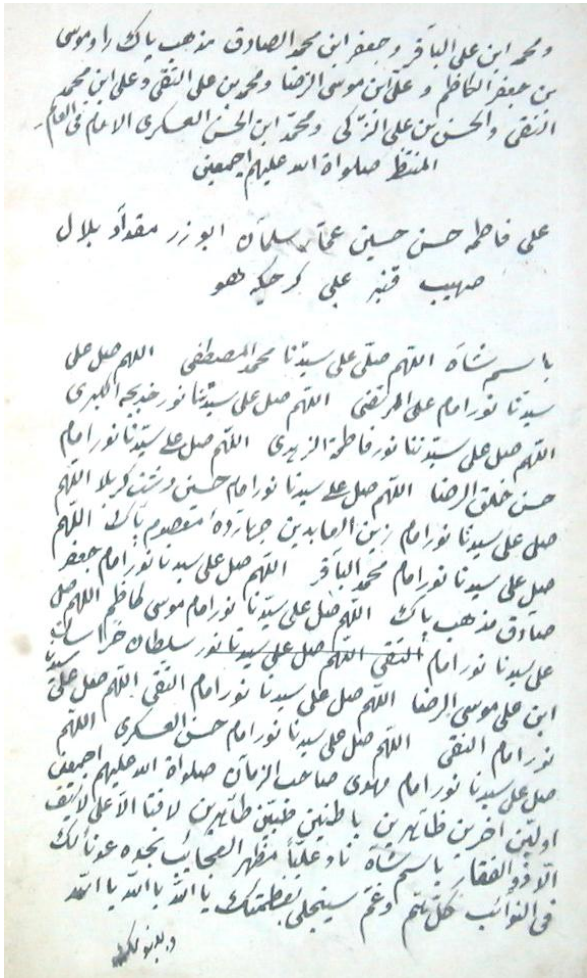 و محمد ابن علی الباقر و جعفر ابن محمد الصادق مذهب پاک را و موسی
بن جعفر الکاظم و علی ابن موسی الرضا و محمد بن علی التقی و علی ابن محمد
النقی و الحسن بن علی الزکی و محمد ابن الحسن العسکری الامام
المنتظر صلواة الله علیهم اجمعین
علی فاطمه حسن حسین عمار سلمان ابو زر مقداد بلال
صهیب قنبر علی هو
باسم شاه اللهم صلی علی سیدنا محمد المصطفی اللهم صل علی
سیدنا نور امام علی المرتضی اللهم صل علی سیدتنا نور خدیجه الکبری
اللهم صل علی سیدتنا نور فاطمة الزهری اللهم صل علی سیدنا نور امام
حسن خلق الرضا اللهم صل علی سیدنا نور امام حسین دشت کربلا اللهم
صل علی سیدنا نور امام زین العابدین چهارده معصوم پاک اللهم
صل علی سیدنا نور امام محمد الباقر اللهم صل علی سیدنا نور امام جعفر
صادق مذهب پاک اللهم صل علی سیدنا نور امام موسی کاظم اللهم صل
علی سیدنا نور امام التقی اللهم صل علی سیدنا نور سلطان خراسان
ابن علی موسی الرضا اللهم صل علی سیدنا نور امام التقی اللهم صل علی سیدنا
نور امام النقی اللهم صل علی سیدنا نور امام حسن العسکری اللهم
صل علی سیدنا نور امام مهدی صاحب الزمان صلواة الله علیهم اجمعین
اولین اخرین ظاهرین باطنین طیبین طاهرین لا فتا الا علی لا سیف
الا ذو الفقار باسم شاه ناد علیا مظهر العجایب تجده عونا لک
فی النوائب کل هم و غم سینجلی بعظمتک یا الله یا الله یا الله